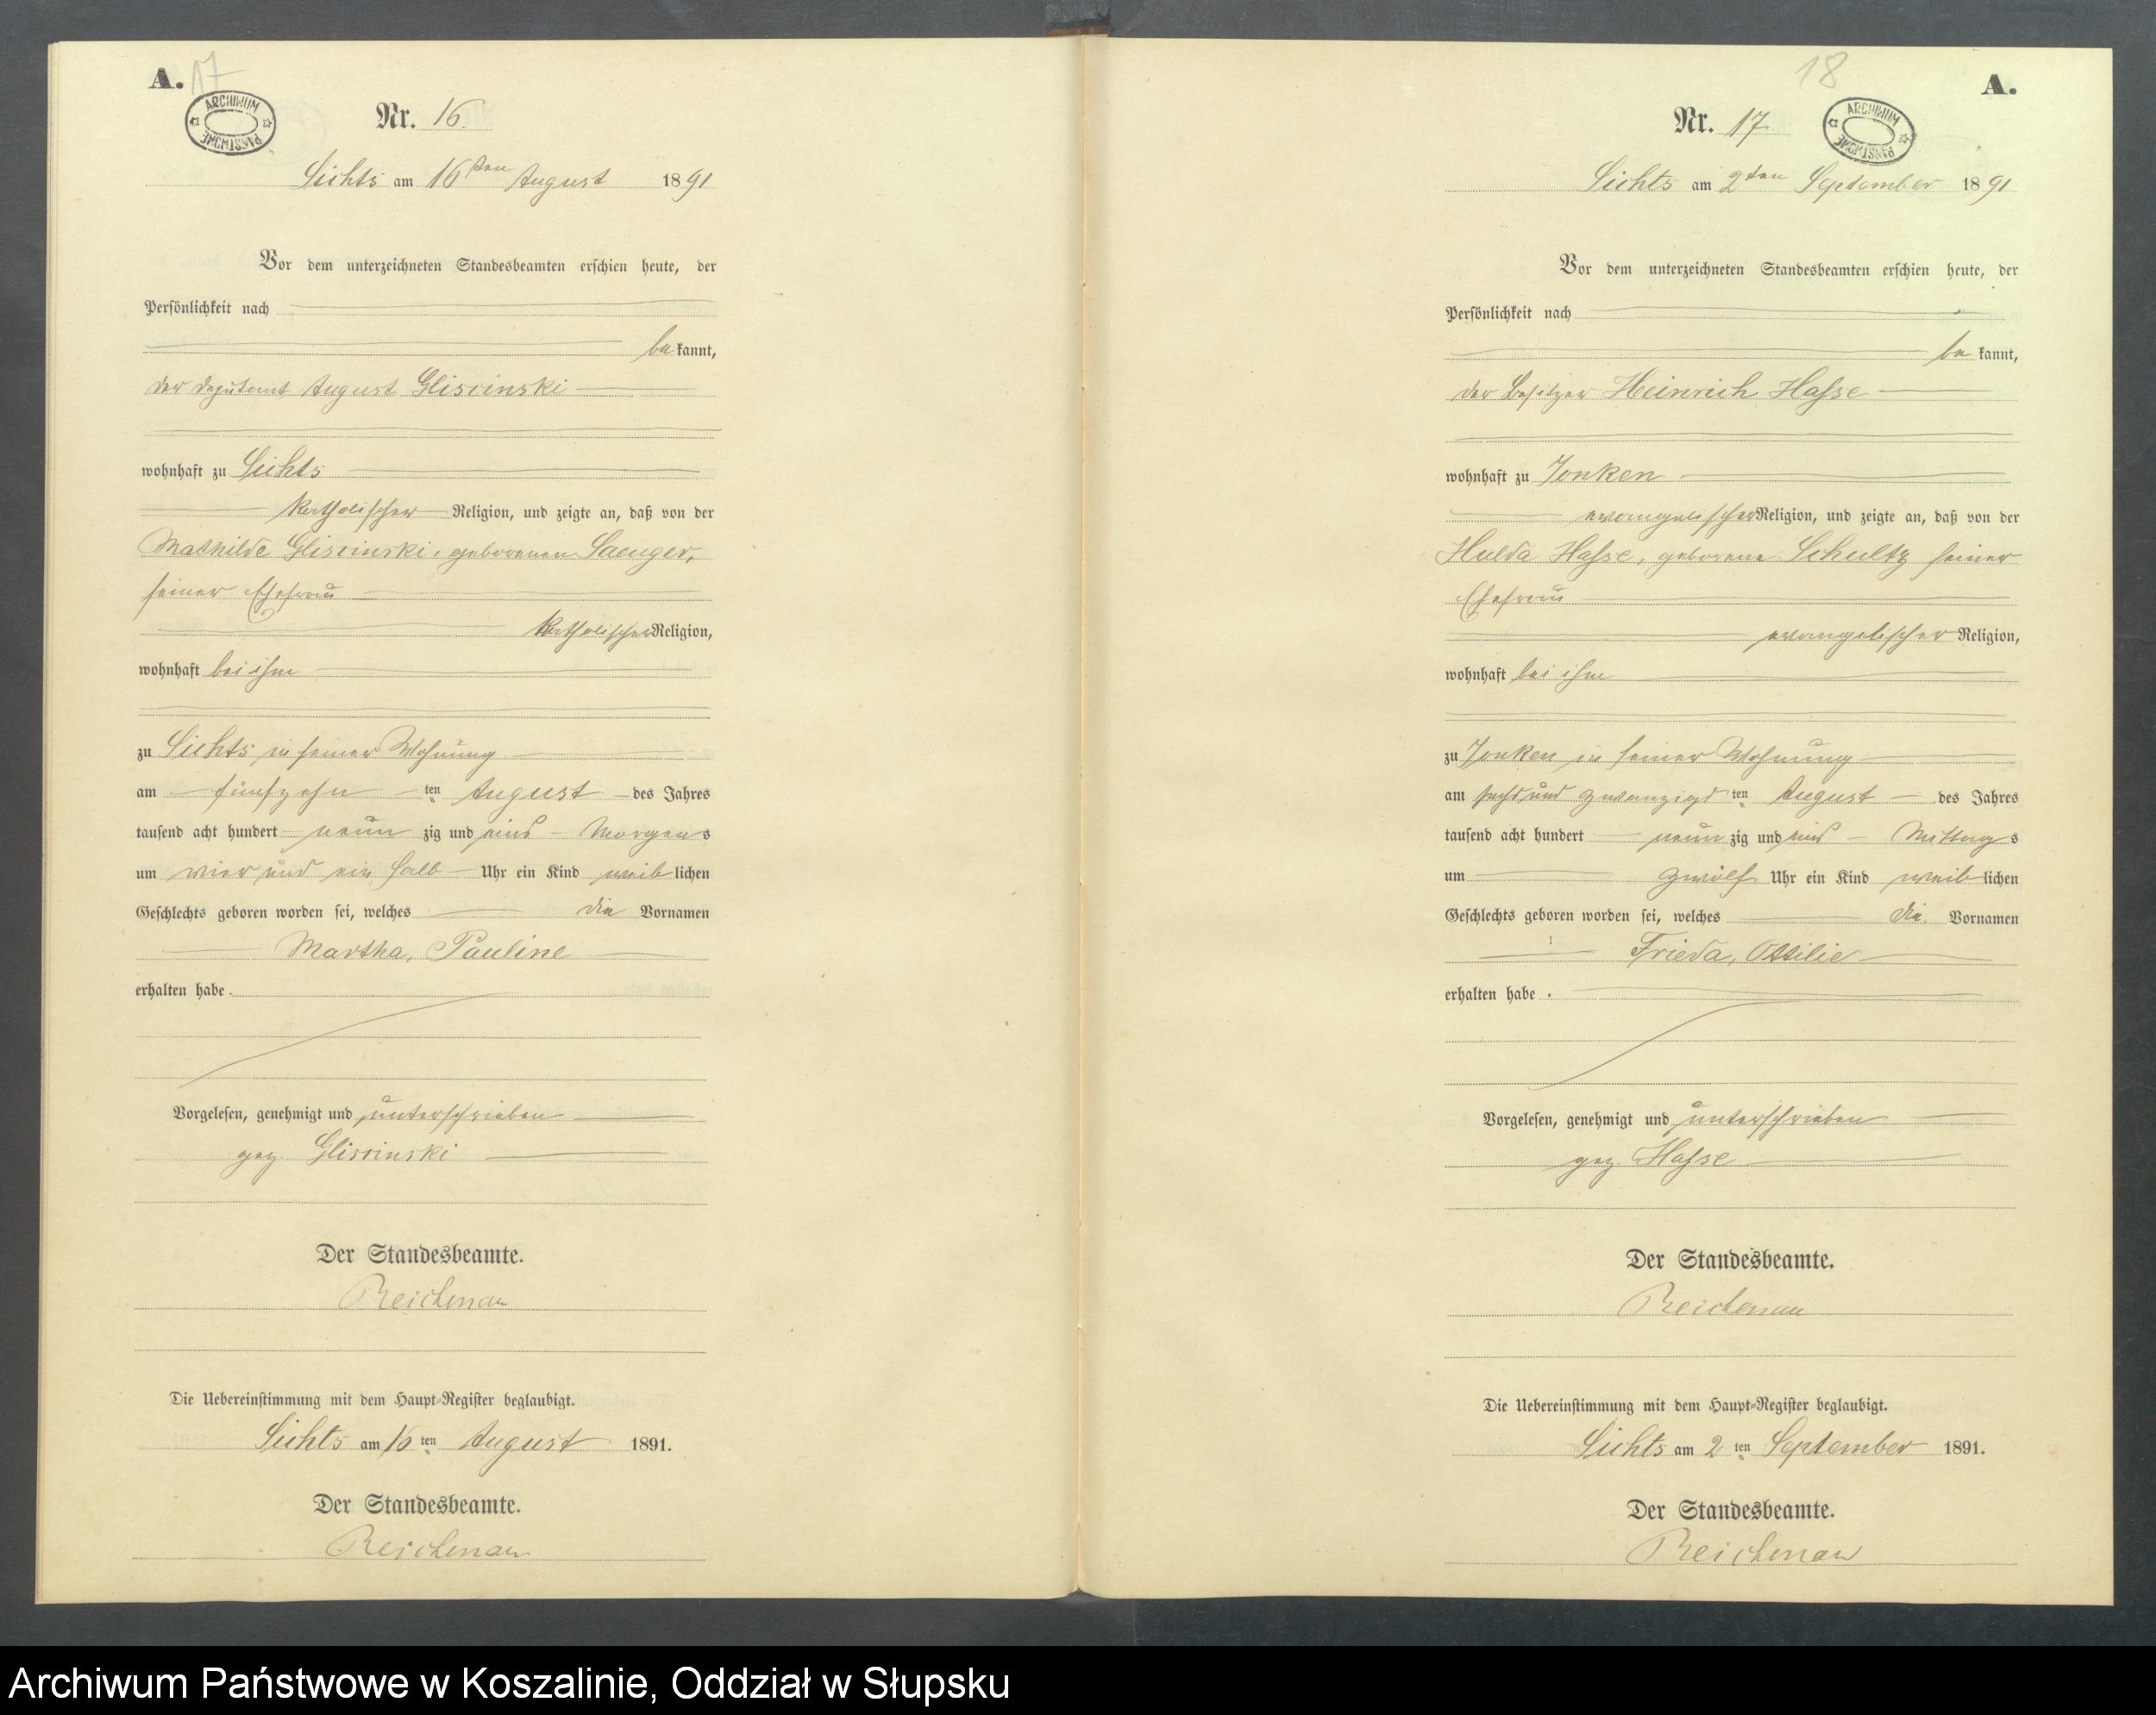 A. 17
ARCHIWUM PAŃSTWOWE
Nr. 16.
Lichts am 16ten August 1891
Vor dem unterzeichneten Standesbeamten erschien heute, der
Persönlichkeit nach
be kannt,
der Deputant August Gliscinski
wohnhaft zu Lichts
katholischer Religion, und zeigte an, daß von der
Mathilde Gliscinski, geborenen Saenger,
seiner Ehefrau
katholischer Religion,
wohnhaft bei ihm
zu Lichts in seiner Wohnung
am fünfzehn ten August des Jahres
tausend acht hundert neun zig und eins Morgens
um vier und ein halb Uhr ein Kind weib lichen
Geschlechts geboren worden sei, welches die Vornamen
Martha, Pauline
erhalten habe.
Vorgelesen, genehmigt und unterschrieben
gez. Gliscinski
Der Standesbeamte.
Reichenau
Die Uebereinstimmung mit dem Haupt-Register beglaubigt.
Lichts am 16 ten August 1891.
Der Standesbeamte.
Reichenau
18 A.
ARCHIWUM PAŃSTWOWE
Nr. 17.
Lichts am 2ten September 1891
Vor dem unterzeichneten Standesbeamten erschien heute, der
Persönlichkeit nach
be kannt,
der Besitzer Heinrich Hasse
wohnhaft zu Jonken
evangelischer Religion, und zeigte an, daß von der
Hulda Hasse, geborene Schultz seiner
Ehefrau
evangelischer Religion,
wohnhaft bei ihm
zu Jonken in seiner Wohnung
am sechs und zwanzigs ten August des Jahres
tausend acht hundert neun zig und eins Mittags
um zwölf Uhr ein Kind weib lichen
Geschlechts geboren worden sei, welches die Vornamen
Frieda, Ottilie
erhalten habe.
Vorgelesen, genehmigt und unterschrieben
gez Hasse
Der Standesbeamte.
Reichenau
Die Uebereinstimmung mit dem Haupt-Register beglaubigt.
Lichts am 2 ten September 1891.
Der Standesbeamte.
Reichenau
Archiwum Państwowe w Koszalinie, Oddział w Słupsku